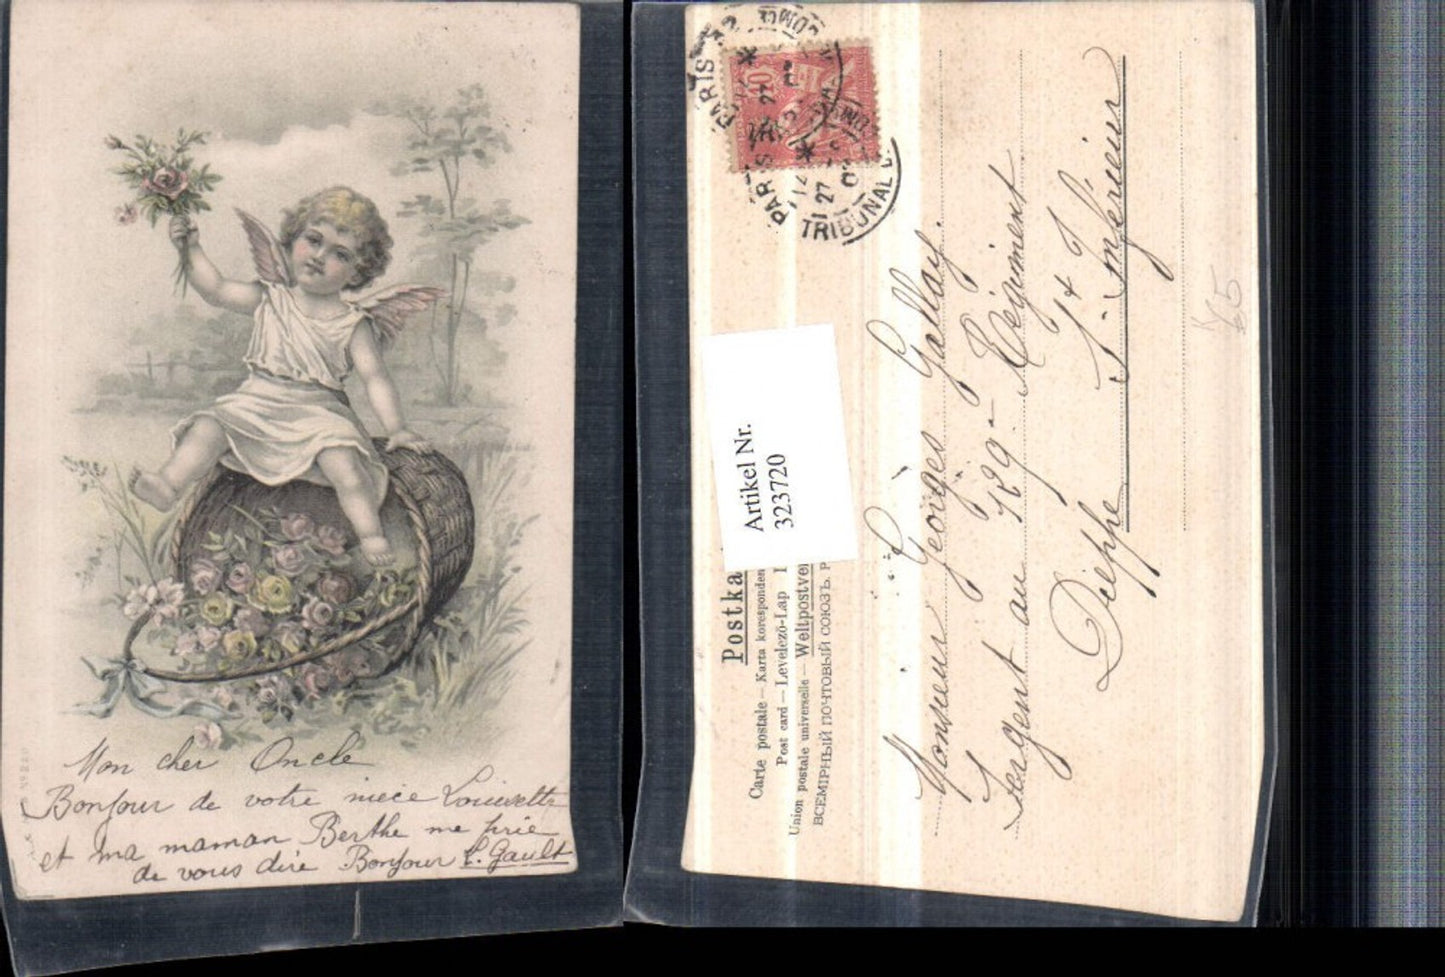 Mon cher Oncle
Bonjour de votre niece Louisette
et ma maman Berthe me prie
de vous dire Bonjour L. Gault
No 220
PARIS
PARIS
TRIBUNAL
10
12
27
Artikel Nr.
323720
Postka
Carte postale — Karta koresponden
Post card — Levelező-Lap
Union postale universelle — Weltpostve
ВСЕМІРНЫЙ ПОЧТОВЫЙ СОЮЗЪ. Р
Monsieur Georges Gallay.
Sergent au 129- Régiment
Dieppe
S- Inférieur
65